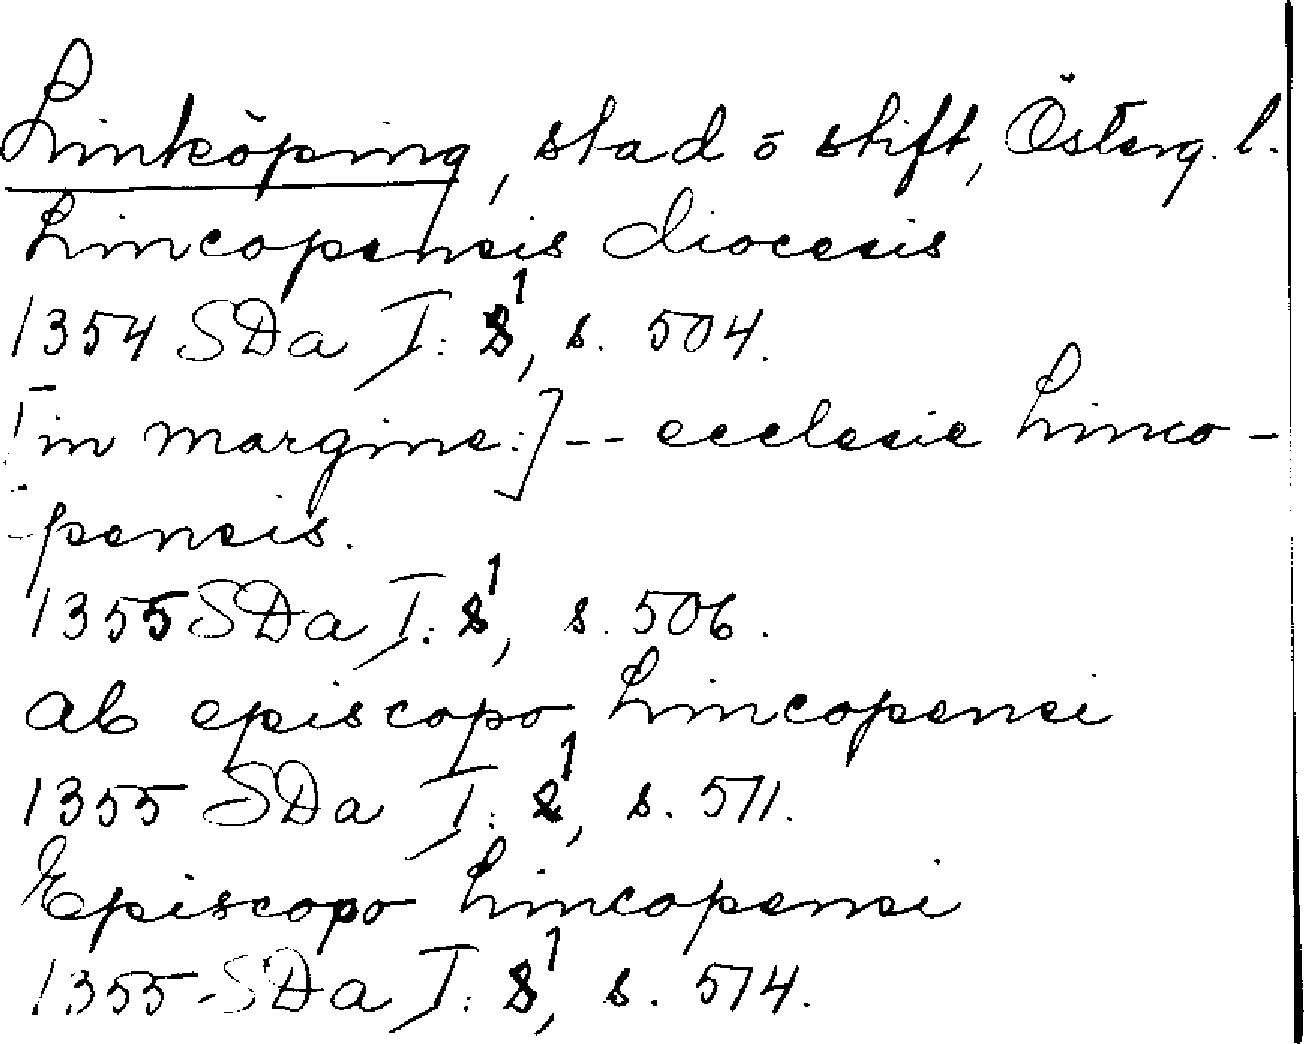 Linköping, stad o stift, Österg. l.
Lincopensis diocesis
1354 SDa I: 1, s. 504.
[in margine:] -- ecclesie Linco-
-pensis.
1355 SDa I: 1, s. 506.
ab episcopo Lincopensi
1355 SDa I: 1, s. 511.
Episcopo Lincopensi
1355 SDa I: 1, s. 514.